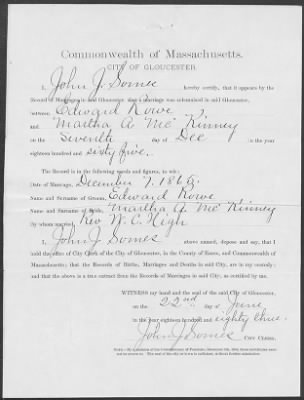 Commonwealth of Massachusetts.
CITY OF GLOUCESTER.
I, John J. Somes hereby certify, that it appears by the
Record of Marriages in said Gloucester, that a marriage was solemnized in said Gloucester,
between Edward Rowe
and "Martha A. Mc" Kinney
on the Seventh day of Dec in the year
eighteen hundred and sixty five.
The Record is in the following words and figures, to wit:
Date of Marriage, December 7, 1865,
Name and Surname of Groom, Edward Rowe
Name and Surname of Bride, Martha A. Mc Kinney
by whom married, Rev W. C. High
I, John J Somes above named, depose and say, that I
hold the office of City Clerk of the City of Gloucester, in the County of Essex, and Commonwealth of
Massachusetts; that the Records of Births, Marriages and Deaths in said City, are in my custody;
and that the above is a true extract from the Records of Marriages in said City, as certified by me.
WITNESS my hand and the seal of the said City of Gloucester,
on the 22nd day of June
in the year eighteen hundred and eighty three.
John J Somes CITY CLERK.